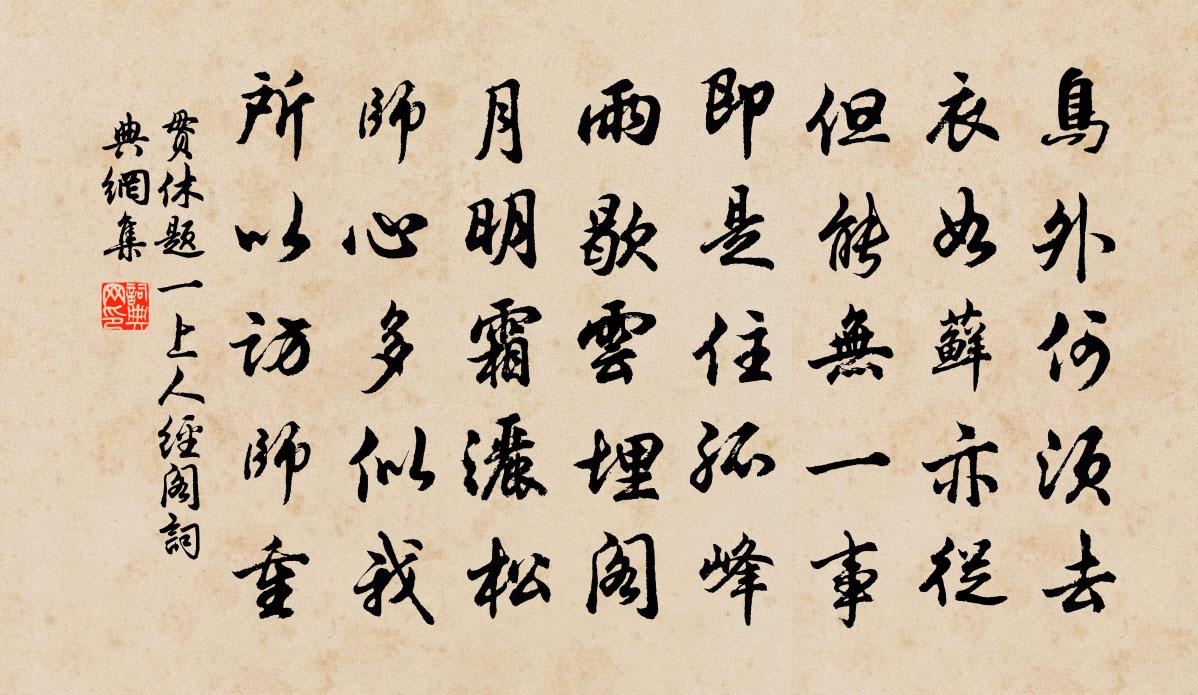 鳥外何須去
衣如蘚亦從
但能無一事
即是住孤峰
雨歇雲埋閣
月明霜灑松
師心多似我
所以訪師重
貫休題一上人經閣詞
典網集
詞典
网印